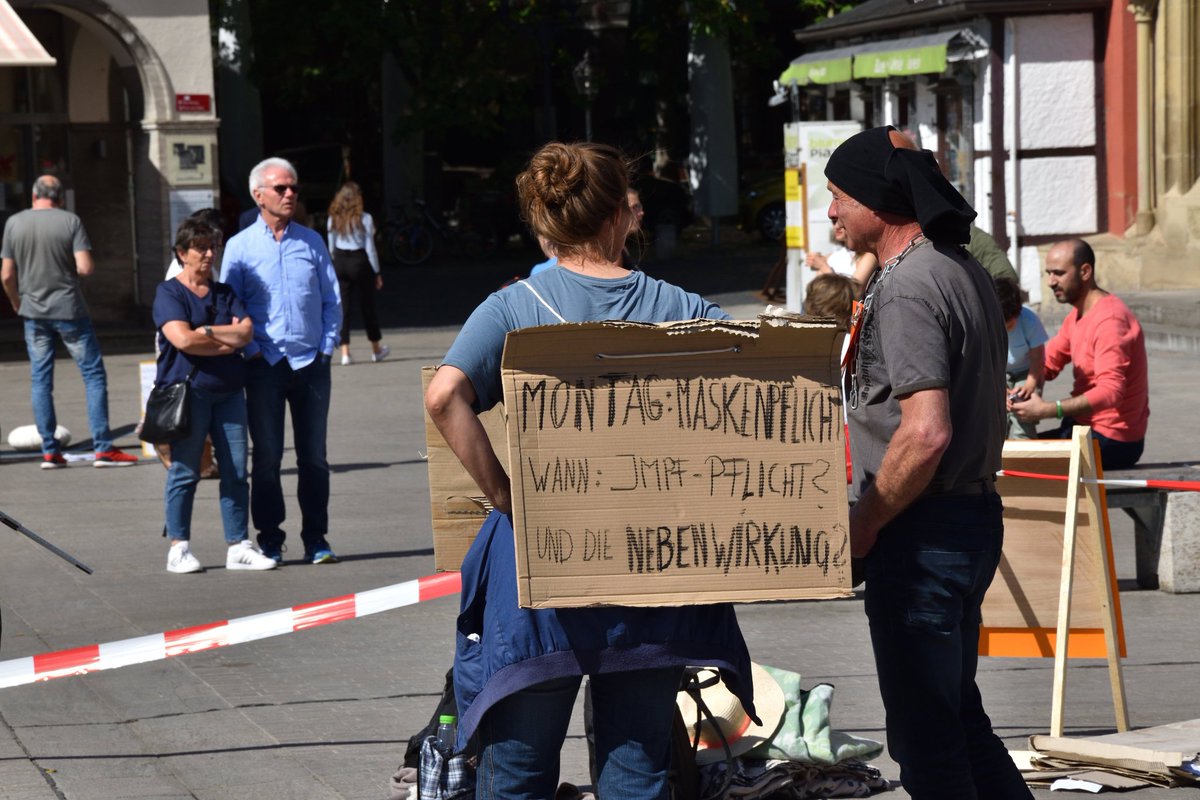 MONTAG: MASKENPFLICHT
WANN: JMPF-PFLICHT?
UND DIE NEBENWIRKUNG?